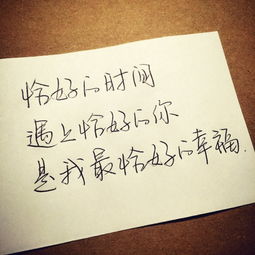 恰好的时间
遇上恰好的你
是我最恰好的幸福.